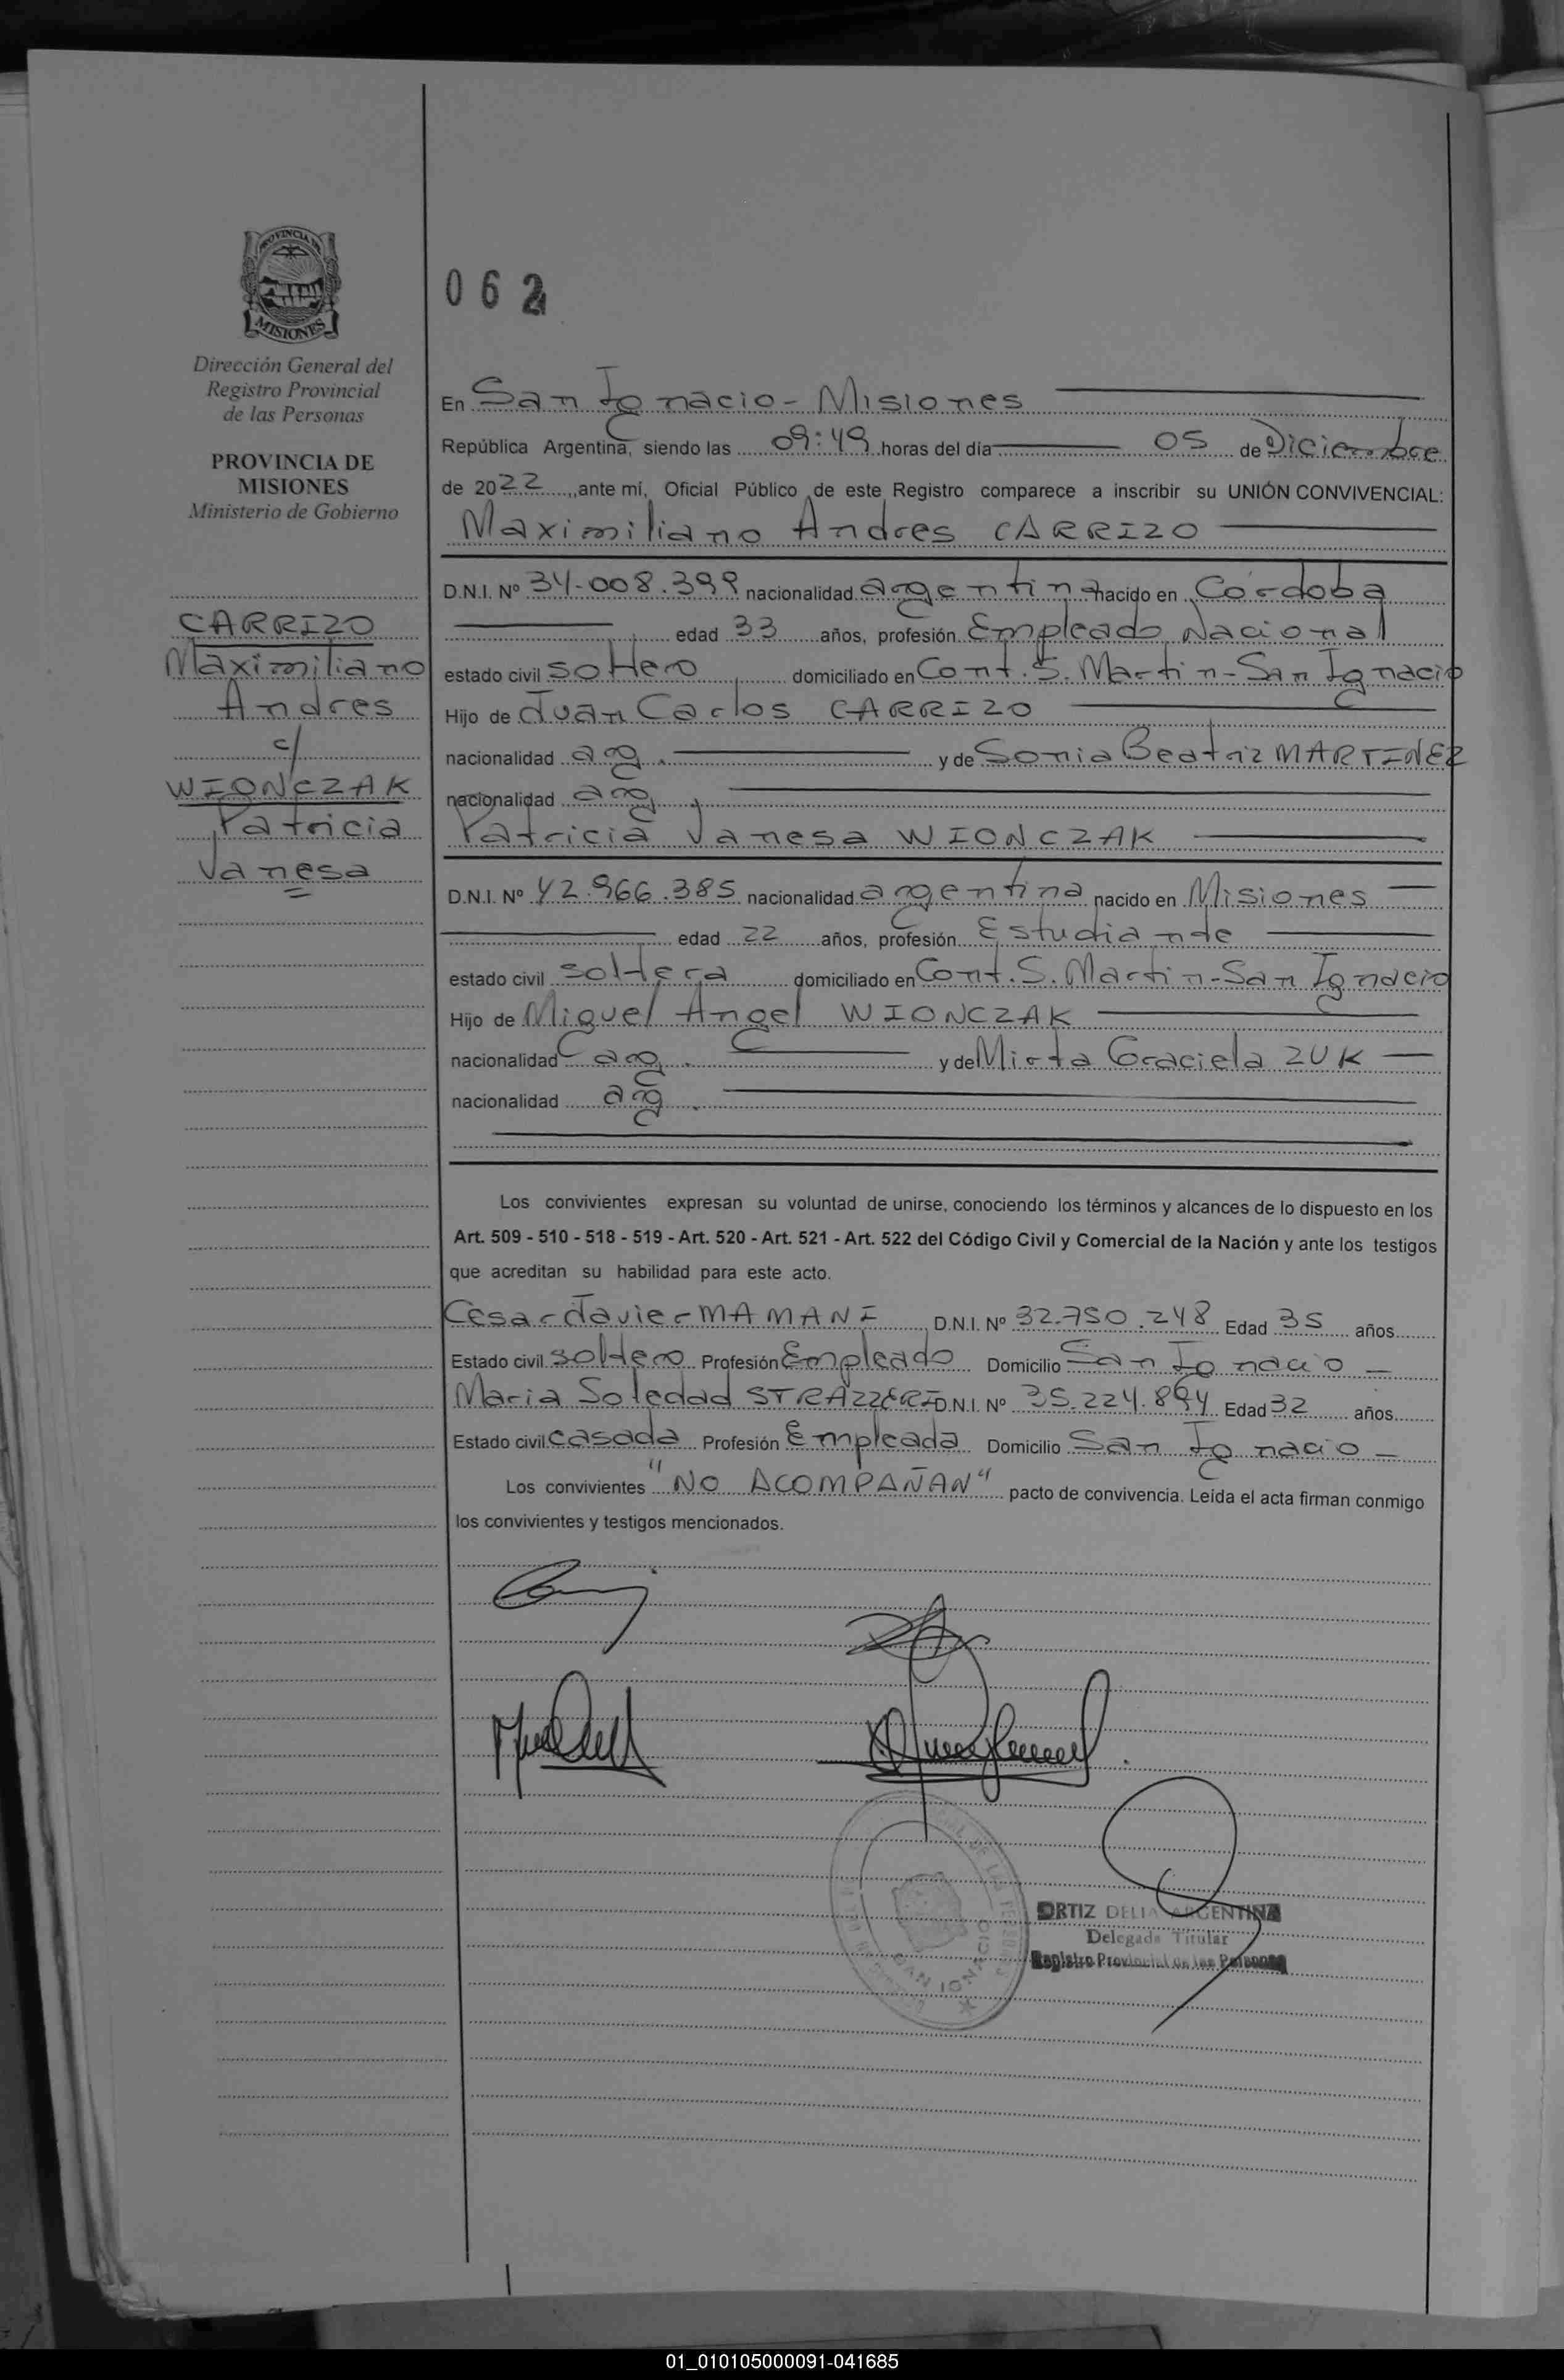 PROVINCIA DE
MISIONES
Dirección General del
Registro Provincial
de las Personas
PROVINCIA DE
MISIONES
Ministerio de Gobierno
CARRIZO
Maximiliano
Andres
c/
WIONCZAK
Patricia
Vanesa
062
En San Ignacio - Misiones
República Argentina, siendo las 09:49 horas del día 05 de Diciembre
de 2022, ante mí, Oficial Público de este Registro comparece a inscribir su UNIÓN CONVIVENCIAL:
Maximiliano Andres CARRIZO
D.N.I. Nº 34.008.399 nacionalidad argentina nacido en Córdoba
edad 33 años, profesión Empleado Nacional
estado civil soltero domiciliado en Cont. S. Martin - San Ignacio
Hijo de Juan Carlos CARRIZO
nacionalidad arg. y de Sonia Beatriz MARTINEZ
nacionalidad arg.
Patricia Vanesa WIONCZAK
D.N.I. Nº 42.966.385 nacionalidad argentina nacido en Misiones
edad 22 años, profesión Estudiante
estado civil soltera domiciliado en Cont. S. Martin - San Ignacio
Hijo de Miguel Angel WIONCZAK
nacionalidad arg. y de Mirta Graciela ZUK
nacionalidad arg.
Los convivientes expresan su voluntad de unirse, conociendo los términos y alcances de lo dispuesto en los
Art. 509 - 510 - 518 - 519 - Art. 520 - Art. 521 - Art. 522 del Código Civil y Comercial de la Nación y ante los testigos
que acreditan su habilidad para este acto.
Cesar Javier MAMANI D.N.I. Nº 32.750.248 Edad 35 años
Estado civil soltero Profesión Empleado Domicilio San Ignacio -
Maria Soledad STRAZZERI D.N.I. Nº 35.224.894 Edad 32 años
Estado civil casada Profesión Empleada Domicilio San Ignacio -
Los convivientes "NO ACOMPAÑAN" pacto de convivencia. Leída el acta firman conmigo
los convivientes y testigos mencionados.
SAN IGNACIO
ORTIZ DELIA ARGENTINA
Delegada Titular
Registro Provincial de las Personas
01_010105000091-041685